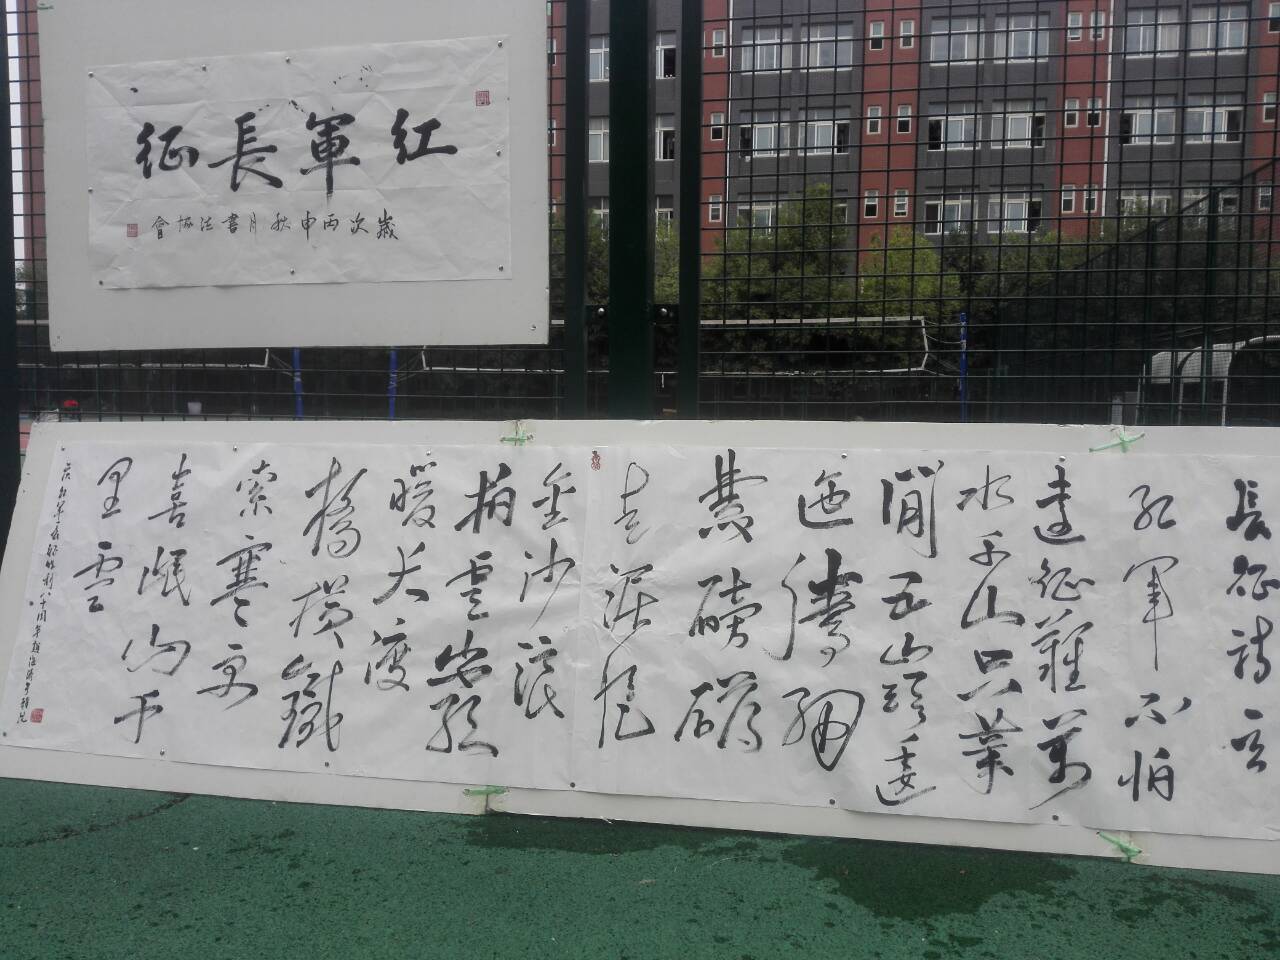 红軍長征
歲次丙申秋月書法協會
長征詩
红軍不怕
遠征難萬
水千山只等
閒五嶺逶
迤騰細
蒙磅礴
走泥丸
金沙浪
拍雲崖
暖大渡
橋橫鐵
索寒更
喜岷山千
里雪
庆红軍長征胜利八十周年